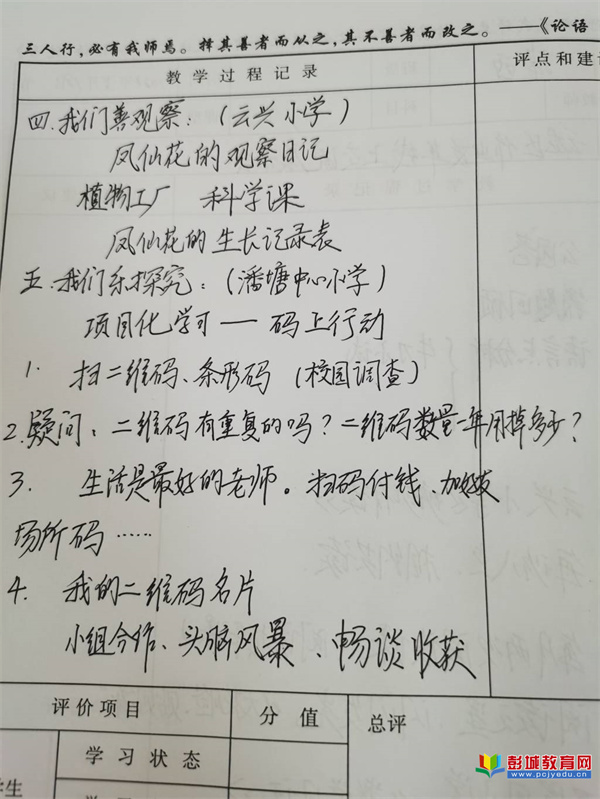 三人行，必有我师焉。择其善者而从之，其不善者而改之。——《论语
教学过程记录
评点和建
四.我们善观察：（云兴小学）
凤仙花的观察日记
植物工厂 科学课
凤仙花的生长记录表
五.我们乐探究：（潘塘中心小学）
项目化学习——码上行动
1. 扫二维码、条形码（校园调查）
2.疑问：二维码有重复的吗？二维码数量一年用掉多少？
3. 生活是最好的老师。扫码付钱、加好友
场所码……
4. 我的二维码名片
小组合作、头脑风暴、畅谈收获
评价项目
分值
总评
学习状态
学生
彭城教育网
www.pcjyedu.cn